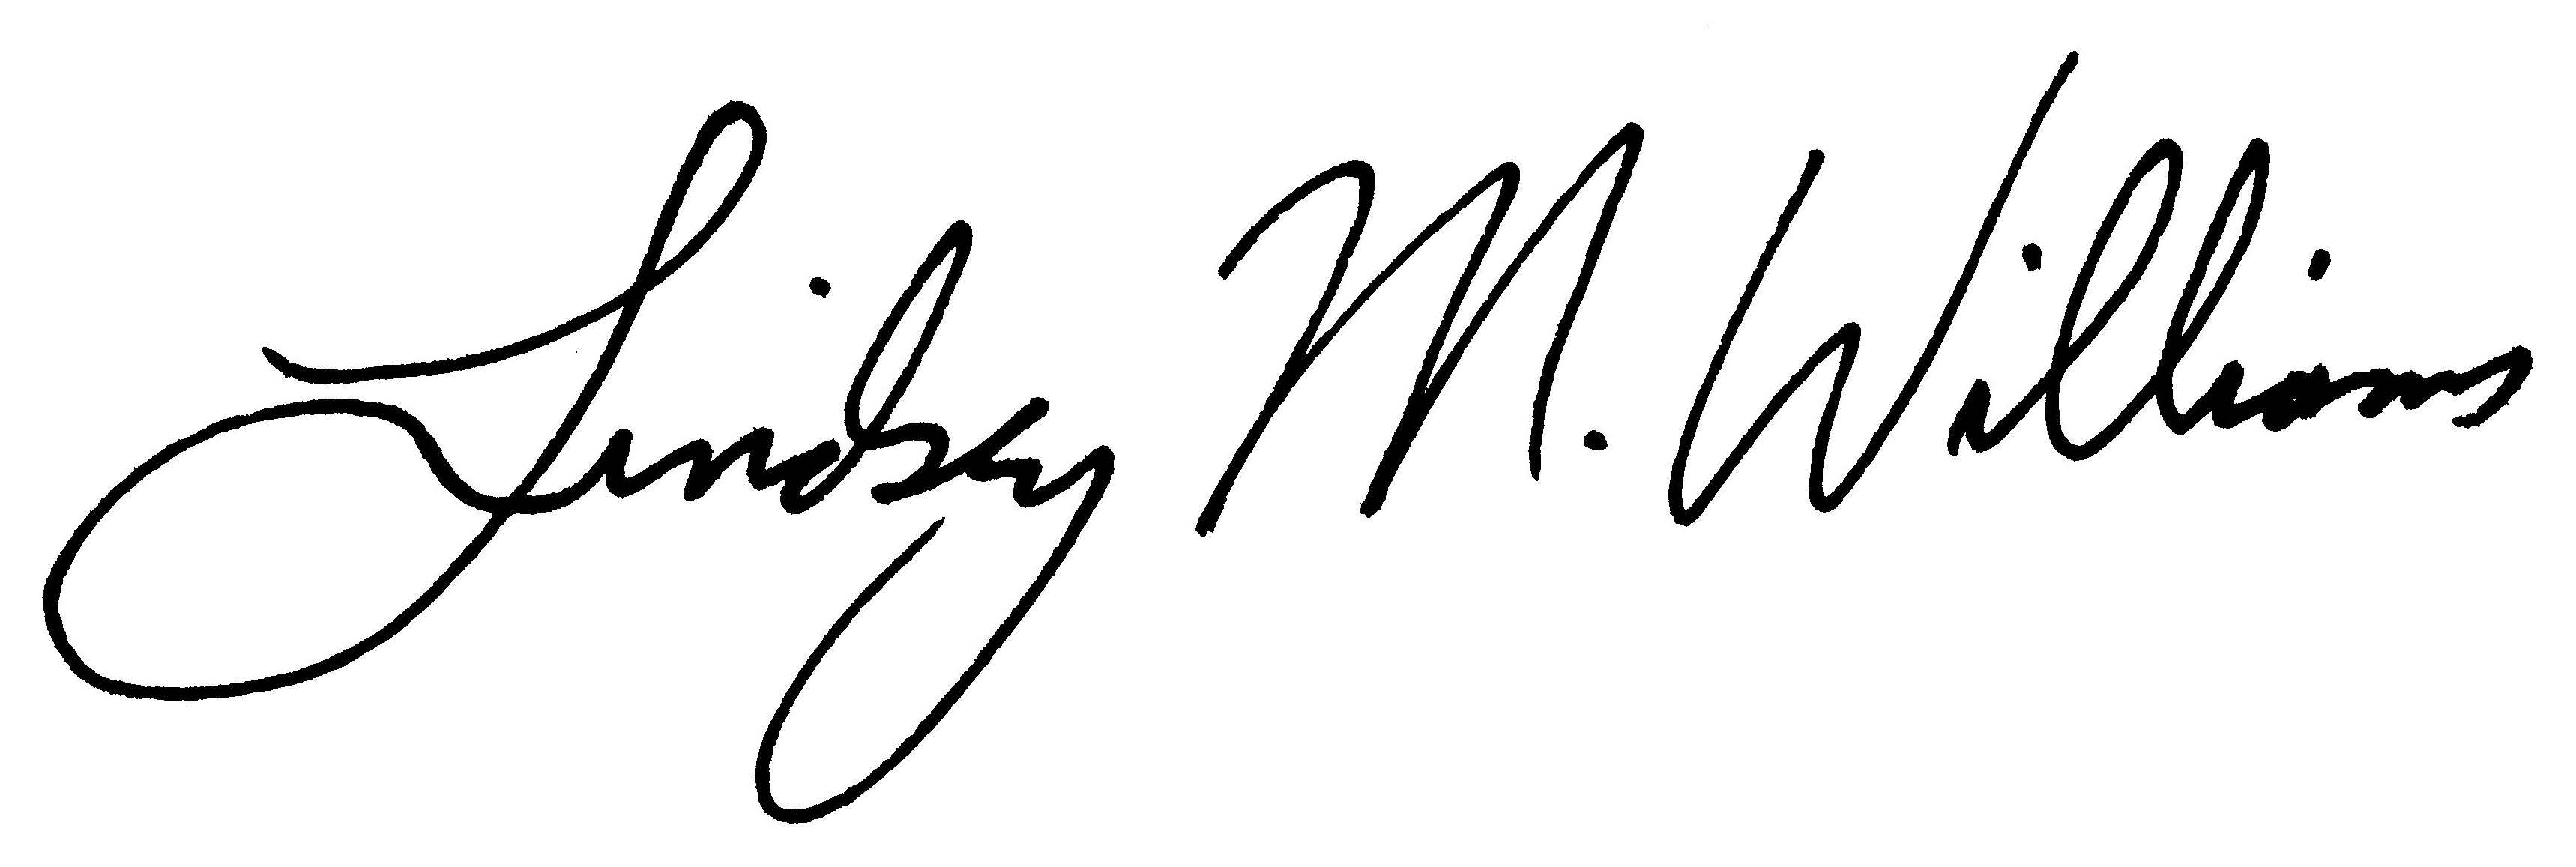 Lindsey M. Williams